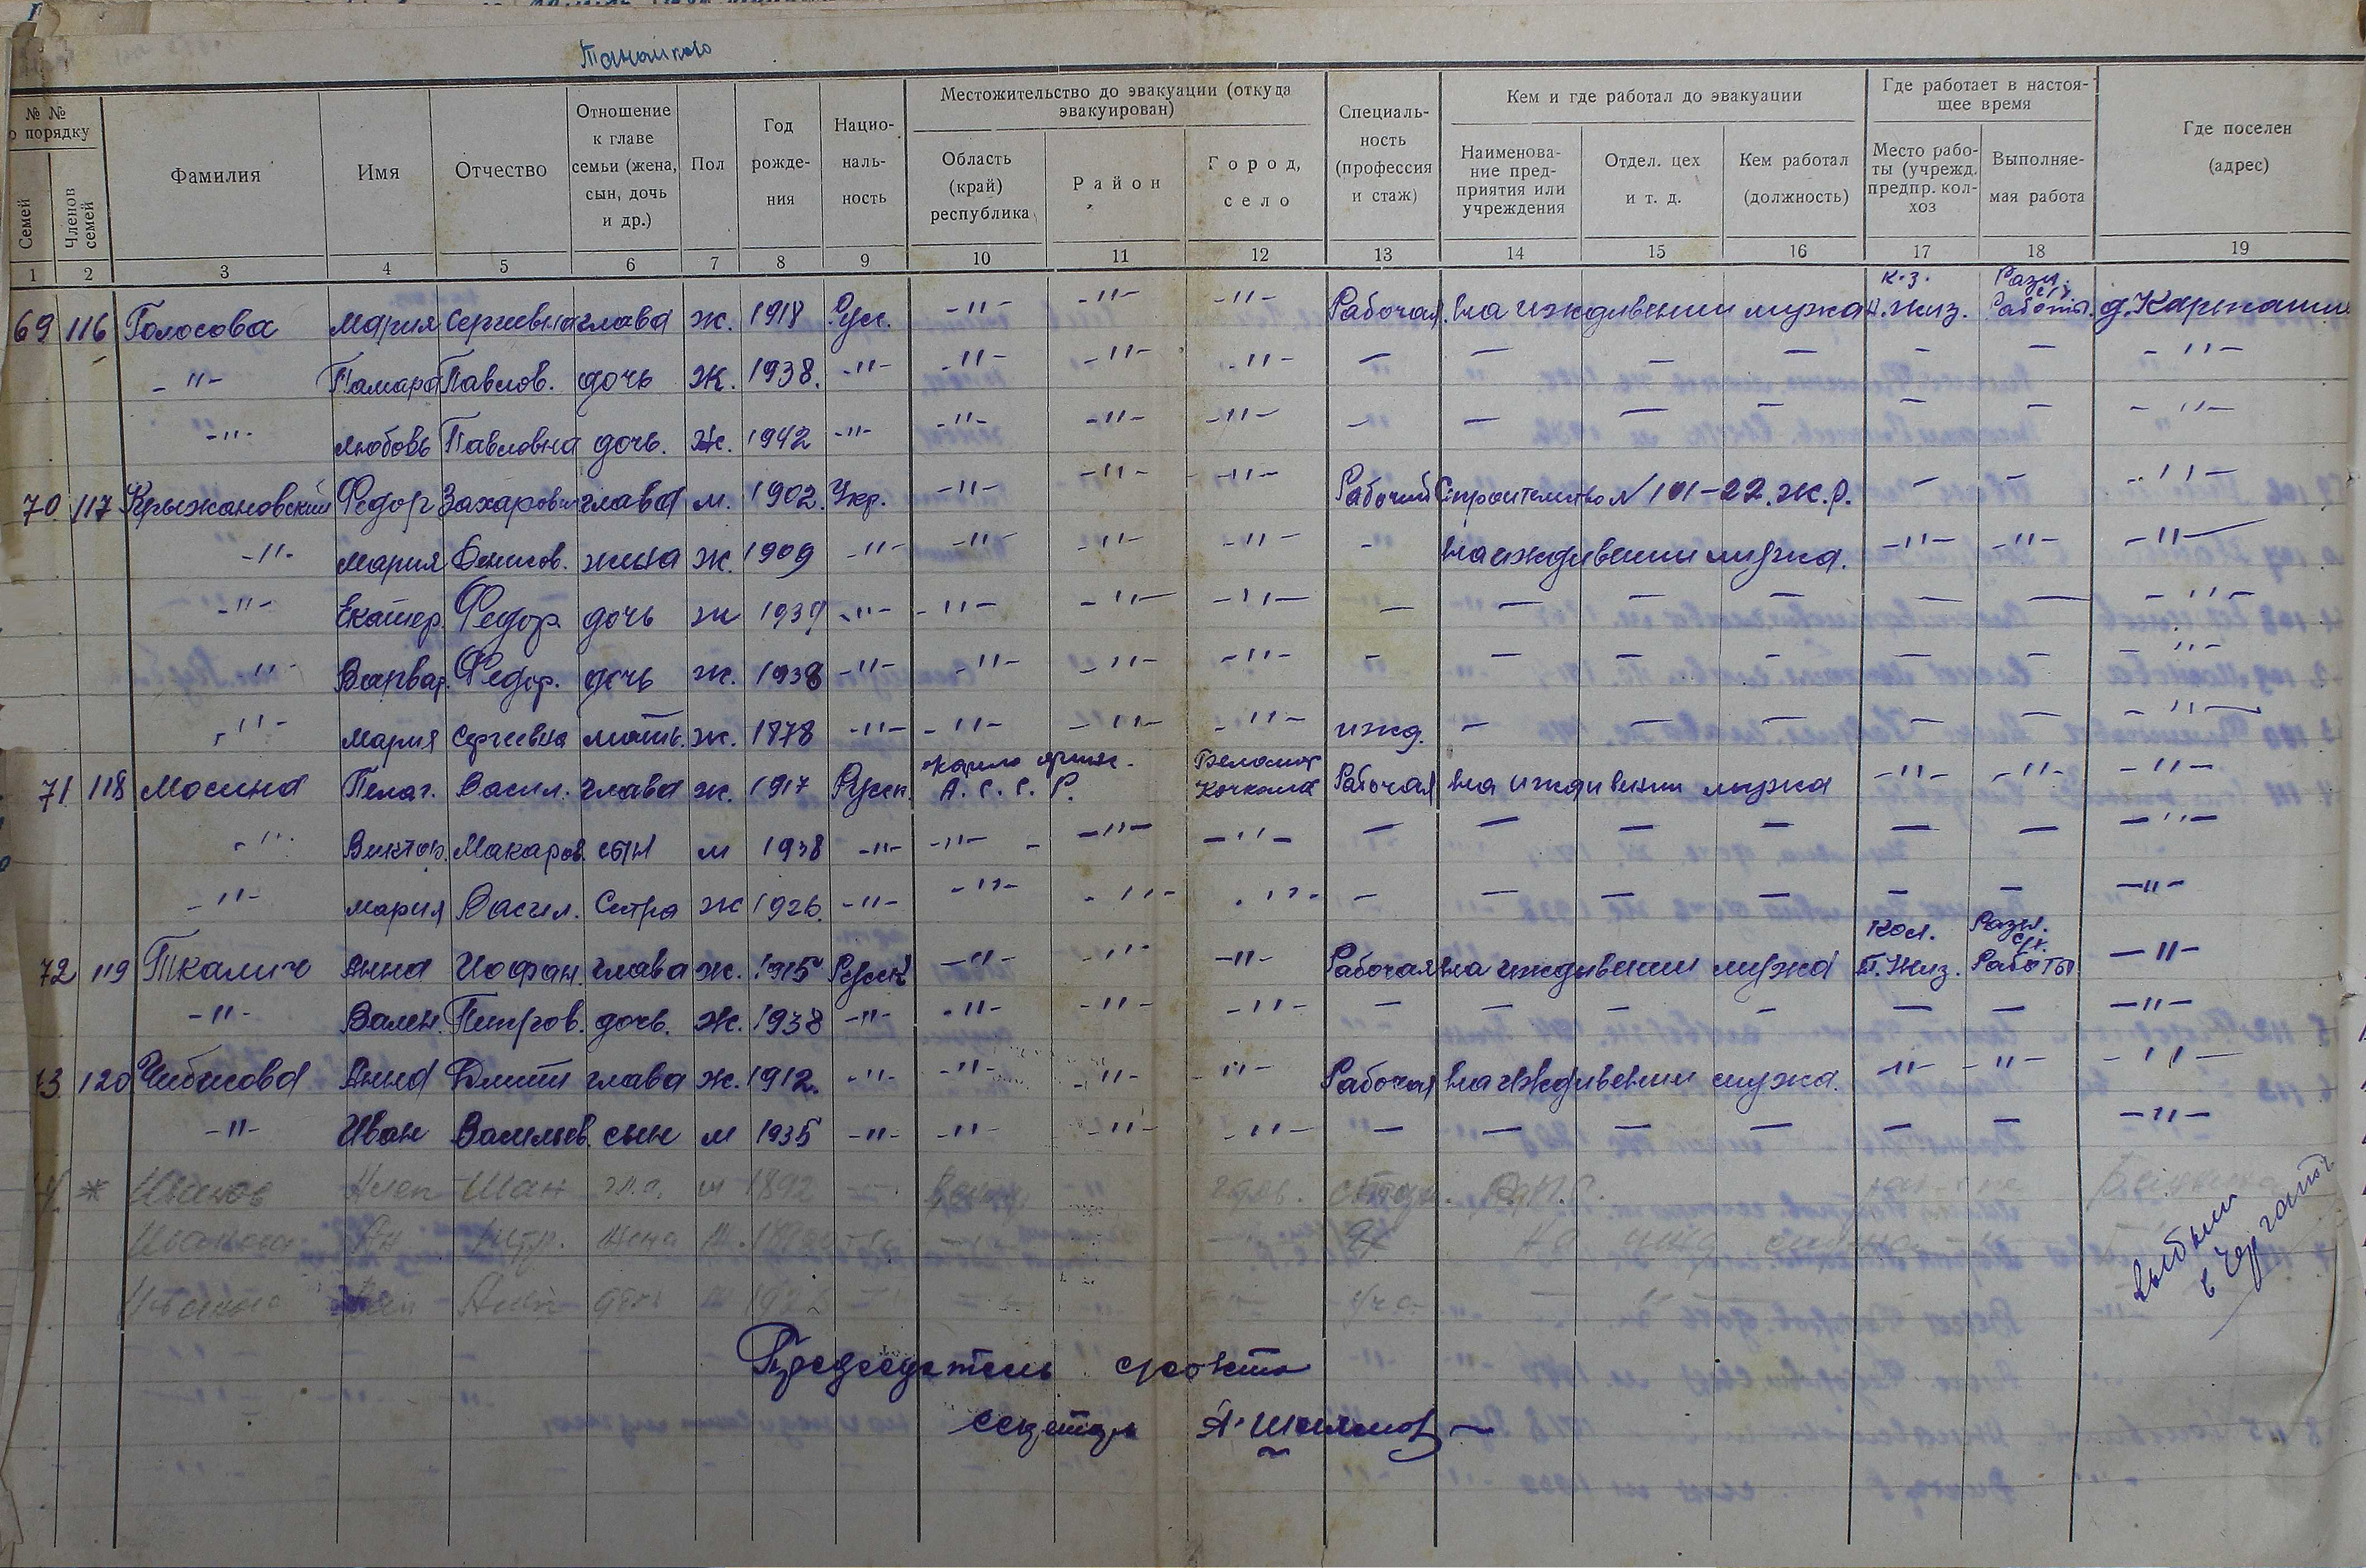 № №
о порядку
Семей
Членов семей
Фамилия
Имя
Отчество
Отношение
к главе
семьи (жена,
сын, дочь
и др.)
Пол
Год
рожде-
ния
Нацио-
наль-
ность
Местожительство до эвакуации (откуда
эвакуирован)
Область
(край)
республика
Район
Город,
село
Специаль-
ность
(профессия
и стаж)
Кем и где работал до эвакуации
Наименова-
ние пред-
приятия или
учреждения
Отдел. цех
и т. д.
Кем работал
(должность)
Где работает в настоя-
щее время
Место рабо-
ты (учрежд.
предпр. кол-
хоз
Выполняе-
мая работа
Где поселен
(адрес)
1 2 3 4 5 6 7 8 9 10 11 12 13 14 15 16 17 18 19
к-з. Разн.
69 116 Голосова Мария Сергеевна глава ж. 1918 Русс. -"- -"- -"- Рабочая. На иждивении мужа Н.жиз. Работы. д.
-"- Тамара Павлов. дочь Ж. 1938. -"- -"- -"- -"- — — — — — — -"-
-"- Любовь Павловна дочь. Ж. 1942 -"- -"- -"- -"- — — — — — — -"-
70. 117 Крыжановский Федор Захарович глава м. 1902. Укр. -"- -"- -"- Рабочий Строительство № 101-22. ж.р. — — -"-
-"- Мария Денисов. жена ж. 1909 -"- -"- -"- -"- — На иждивении мужа. -"- -"- -"-
-"- Екатер. Федор. дочь ж 1939 -"- -"- -"- -"- — — — — — — -"-
-"- Варвар. Федор. дочь ж. 1938 -"- -"- -"- -"- — — — — — — -"-
-"- Мария Сергеевна мать. ж. 1878 -"- -"- -"- -"- ижд. — — — — — -"-
71 118 Мосина Пелаг. Васил. глава ж. 1917 Русск. А.С.С.Р. Беломор Кочкома Рабочая На иждивении мужа -"- -"- -"-
-"- Виктор. Макаров. сын м 1938 -"- -"- -"- -"- — — — — — — -"-
-"- Мария Васил. Сестра ж 1926. -"- -"- -"- -"- — — — — — — -"-
Кол. Разн.
с/х.
72 119 Ткалич Анна Иофан. глава ж. 1915 Русск -"- -"- -"- Рабочая На иждивении мужа Н.Жиз. Работы -"-
-"- Вален. Петров. дочь. Ж. 1938 -"- -"- -"- -"- — — — — — — -"-
73. 120 Чибисова Анна Дмит глава ж. 1912. -"- -"- -"- -"- Рабочая На иждивении мужа. -"- -"- -"-
-"- Иван Васильев. сын м 1935 -"- -"- -"- -"- — — — — — — -"-
Иванов м 1892
Иванова жена
Иванова
выбыли
в
Председатель совета
секретарь